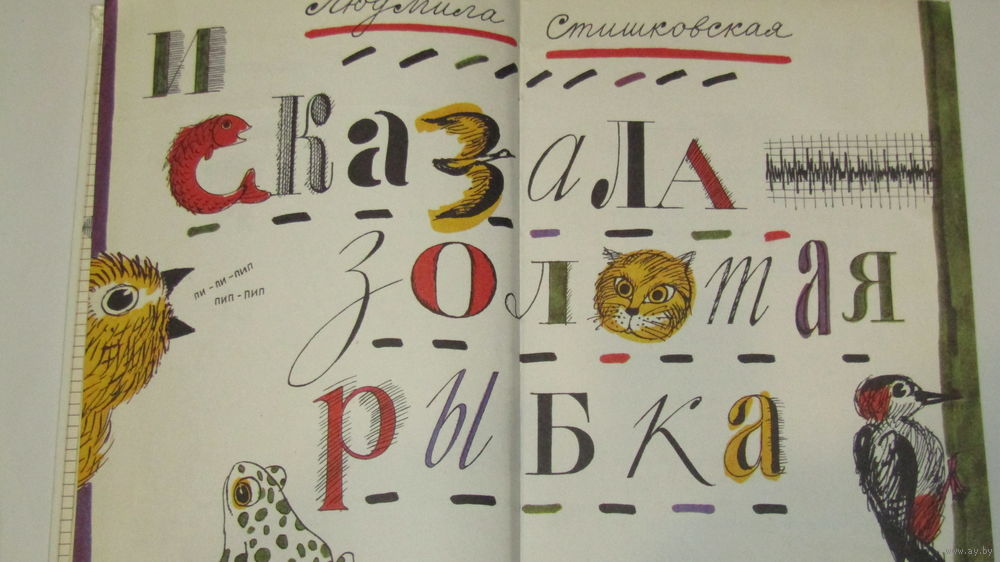 Людмила Стишковская
И
сказала
золотая
рыбка
пи-пи-пип
пип-пип
www.ay.by